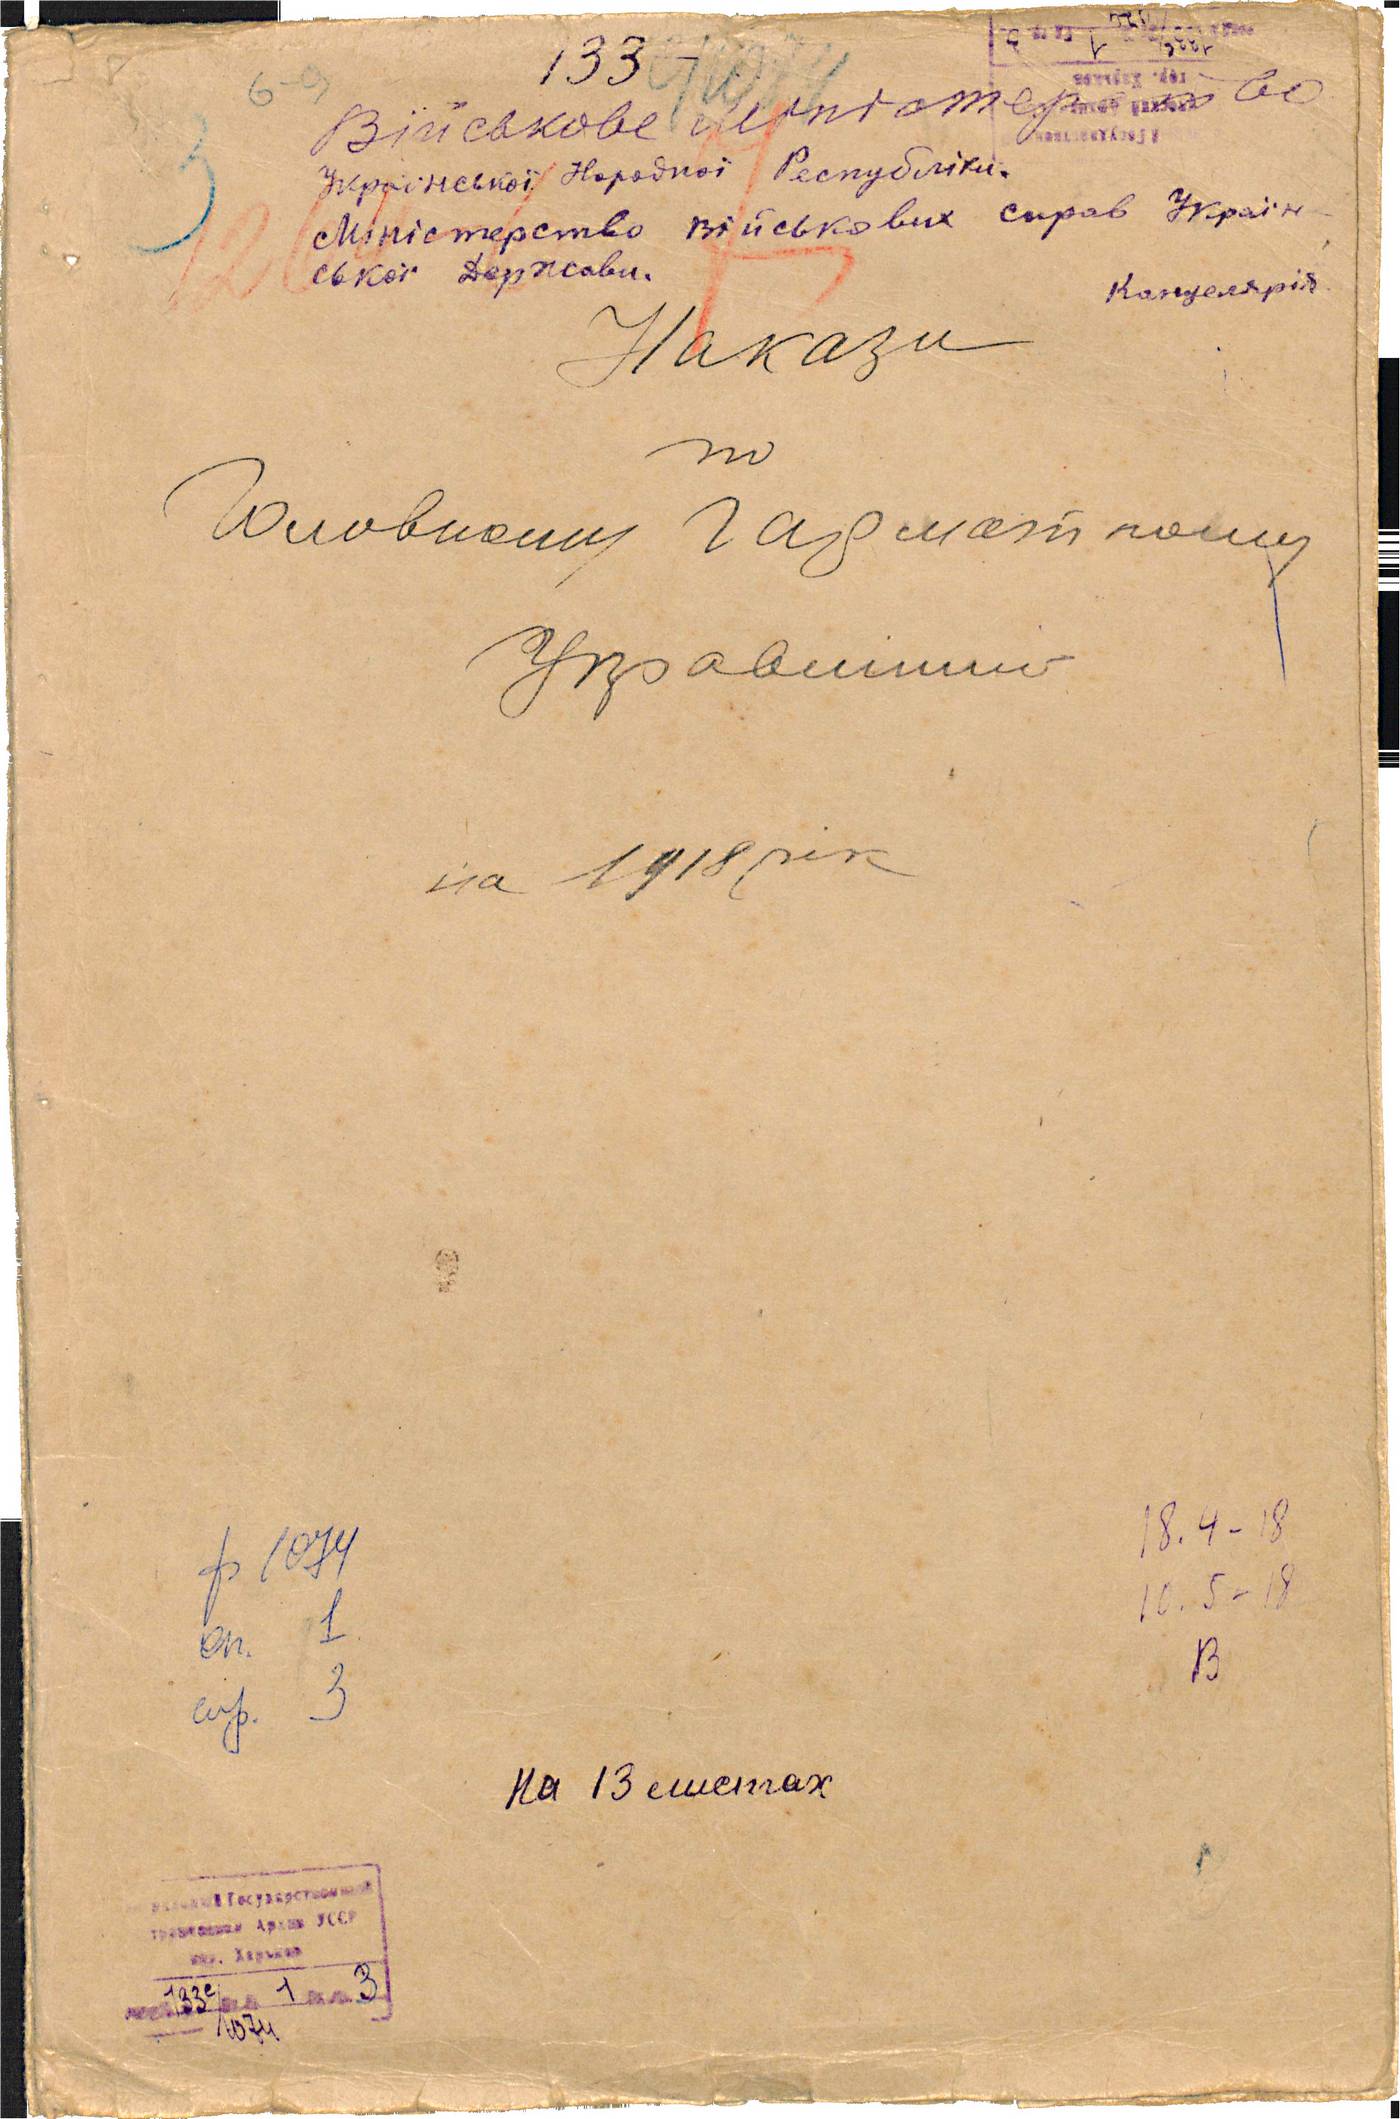 133
6-9
Військове Міністерство
Української Народної Республіки.
Міністерство військових справ Україн-
ської Держави.
Канцелярія
Накази
по
Головному Гарматному
Управлінню
на 1918 рік
ф 1074
оп. 1
спр. 3
18.4-18
10.5-18
В
На 13 листах
Государственный
Архив УССР
гор. Харьков
133с 1 3
1074